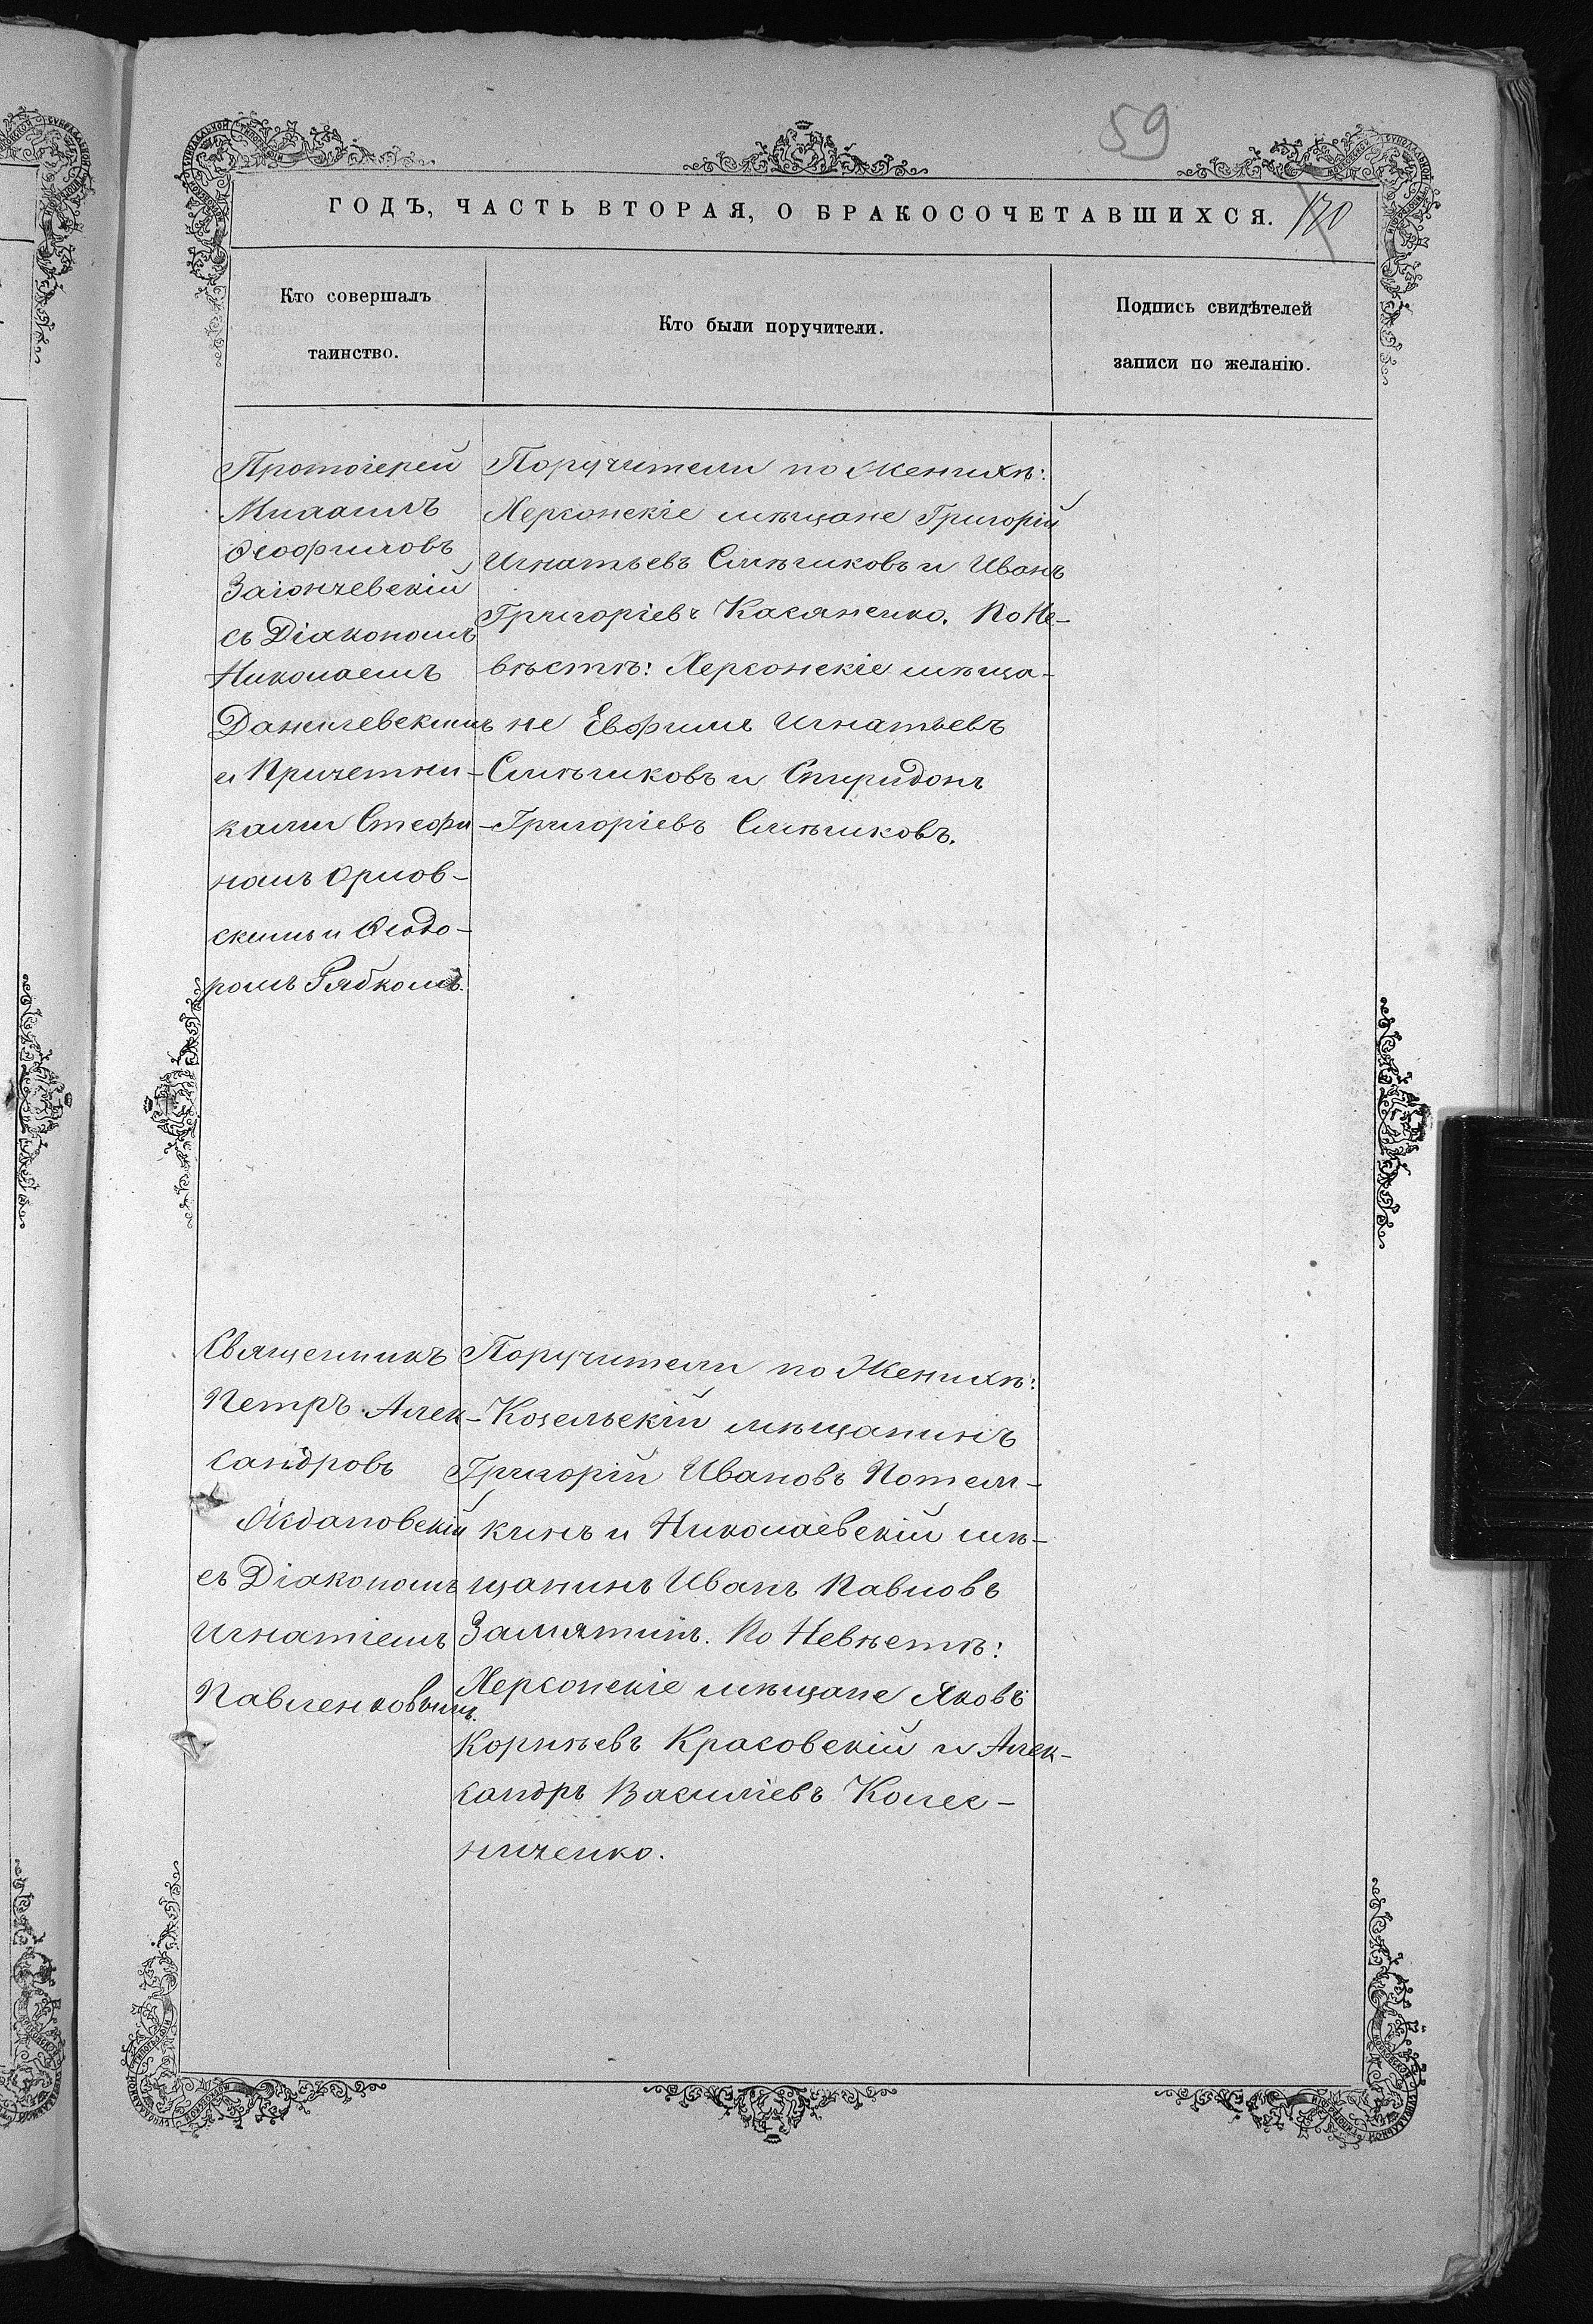 59
ГОДЪ, ЧАСТЬ ВТОРАЯ, О БРАКОСОЧЕТАВШИХСЯ. 170
Кто совершалъ
таинство.
Кто были поручители.
Подпись свидѣтелей
записи по желанію.
Протоіерей
Михаилъ
Ѳеофиловъ
Заіончевскій
съ Діакономъ
Николаемъ
Данилевскимъ
и Причетни-
ками Стефа-
номъ Орлов-
скимъ и Ѳеодо-
ромъ Рябкомъ.
Поручители по Женихѣ:
Херсонскіе мѣщане Григорій
Игнатьевъ Смѣшковъ и Иванъ
Григоріевъ Касяненко. По Не-
вѣстѣ: Херсонскіе мѣща-
не Евфимъ Игнатьевъ
Смѣшковъ и Спиридонъ
Григоріевъ Смѣшковъ.
Священникъ
Петръ Алек-
сандровъ
Ждановскій
съ Діакономъ
Игнатіемъ
Павленковымъ.
Поручители по Женихѣ:
Козельскій мѣщанинъ
Григорій Ивановъ Потем-
кинъ и Николаевскій мѣ-
щанинъ Иванъ Павловъ
Замятинъ. По Невѣстѣ:
Херсонскіе мѣщане Яковъ
Корнѣевъ Красовскій и Алек-
сандръ Василіевъ Колес-
ниченко.